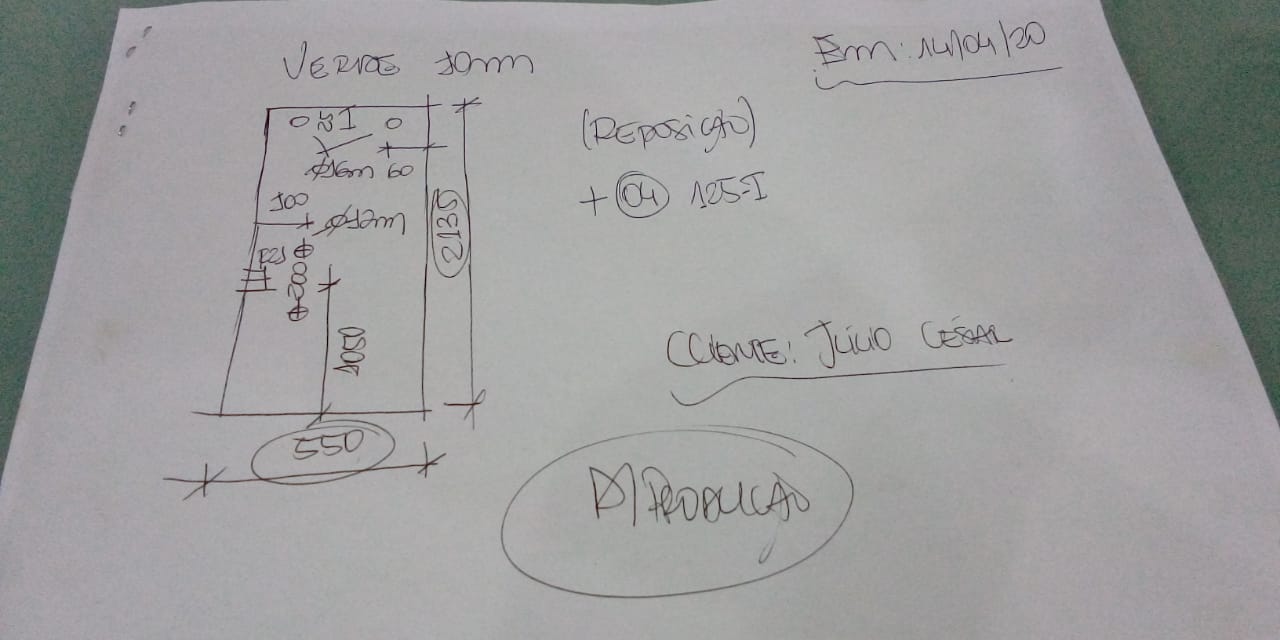 VERDE 10mm
Em: 14/04/20
(REPOSIÇÃO)
+ 04 125-I
Ø16m 60
100
Ø12m
2135
200
1050
550
CLIENTE: JÚLIO CÉSAR
P/ PRODUÇÃO